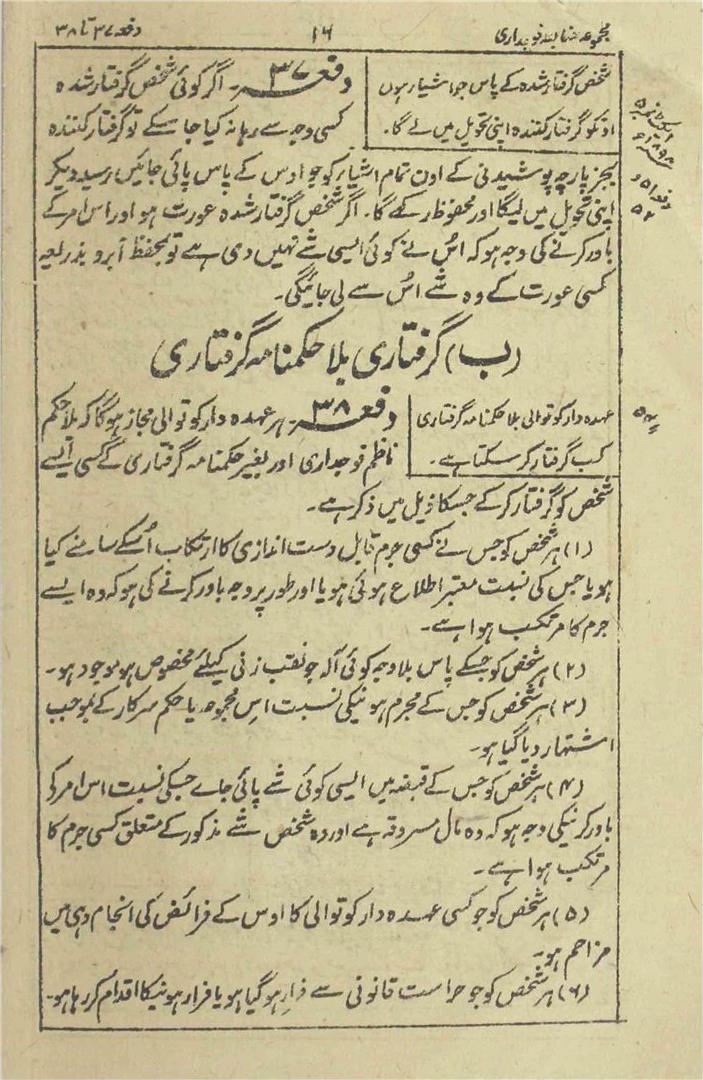 مجموعہ ضابطہ فوجداری
۱۶
دفعہ ۳۷ تا ۳۸
شخص گرفتار شدہ کے پاس جو اشیار ہوں
اونکو گرفتار کنندہ اپنی تحویل میں لے گا۔
دفعہ ۳۷۔ اگر کوئی شخص گرفتار شدہ
کسی وجہ سے رہا نہ کیا جا سکے تو گرفتار کنندہ
بجز پارچہ پوشیدنی کے اون تمام اشیاء کو جو اوس کے پاس پائی جائیں رسید دیکر
اپنی تحویل میں لیگا اور محفوظ رکھے گا۔ اگر شخص گرفتار شدہ عورت ہو اور اس امر کے
باور کرنے کی وجہ ہو کہ اُس نے کوئی ایسی شے نہیں دی ہے تو بحفظ آبرو بذریعہ
کسی عورت کے وہ شے اُس سے لی جائیگی۔
دفعہ ۵۱ و
۵۲
(ب) گرفتاری بلا حکمنامہ گرفتاری
عہدہ دار کوتوالی بلا حکمنامہ گرفتاری
کب گرفتار کر سکتا ہے۔
دفعہ ۳۸۔ ہر عہدہ دار کوتوالی مجاز ہوگا کہ بلا حکم
ناظم فوجداری اور بغیر حکمنامہ گرفتاری کے کسی ایسے
شخص کو گرفتار کرے جسکا ذیل میں ذکر ہے۔
(۱) ہر شخص کو جس نے کسی جرم قابل دست اندازی کا ارتکاب اُسکے سامنے کیا
ہو یا جس کی نسبت معتبر اطلاع ہوئی ہو یا اور طور پر وجہ باور کرنے کی ہو کہ وہ ایسے
جرم کا مرتکب ہوا ہے۔
(۲) ہر شخص کو جسکے پاس بلا وجہ کوئی آلہ جو نقب زنی کیلئے مخصوص ہو موجود ہو۔
(۳) ہر شخص کو جس کے مجرم ہونیکی نسبت اس مجموعہ یا حکم سرکار کے بموجب
اشتہار دیا گیا ہو۔
(۴) ہر شخص کو جس کے قبضہ میں ایسی کوئی شے پائی جاے جسکی نسبت اس امر کی
باور کرنیکی وجہ ہو کہ وہ مال مسروقہ ہے اور وہ شخص شے مذکور کے متعلق کسی جرم کا
مرتکب ہوا ہے۔
(۵) ہر شخص کو جو کسی عہدہ دار کوتوالی کا اوس کے فرائض کی انجام دہی میں
مزاحم ہو۔
(۶) ہر شخص کو جو حراست قانونی سے فرار ہو گیا ہو یا فرار ہونیکا اقدام کر رہا ہو۔